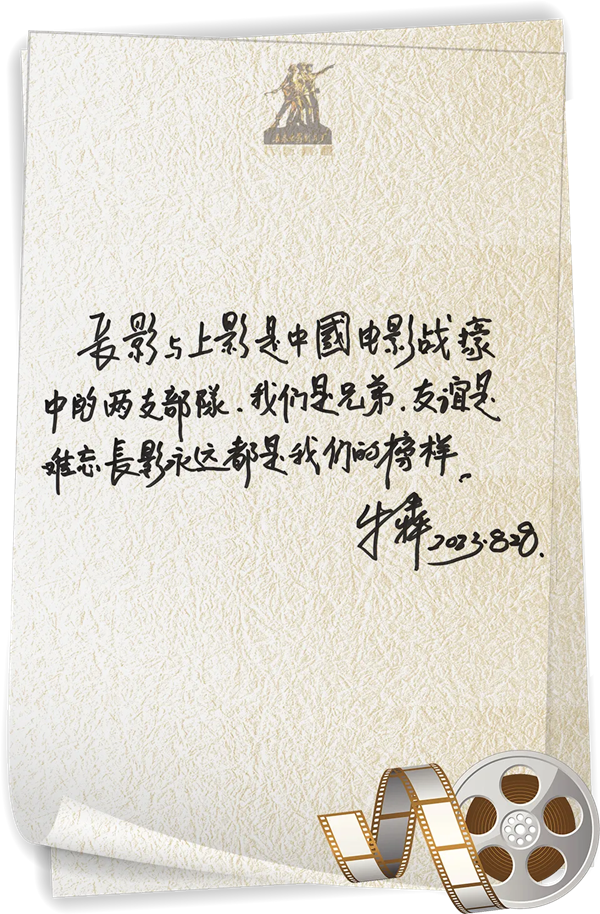 長影与上影是中國电影战壕
中的两支部隊.我们是兄弟.友谊是
难忘長影永远都是我们的榜样。
牛犇2023.8.28.